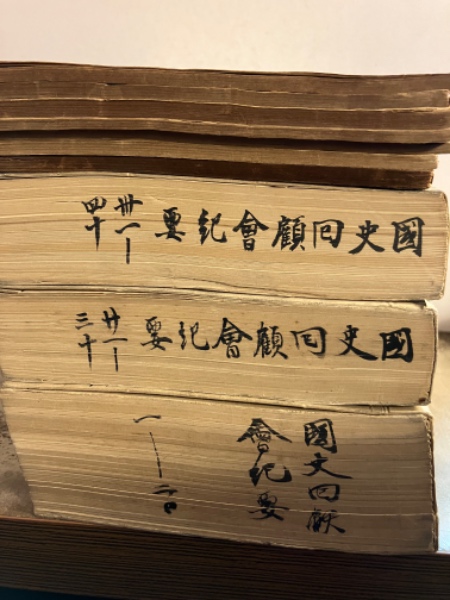 國史回顧會紀要
卅一—
四十
國史回顧會紀要
廿一—
三十
國史回顧
會紀要
一—